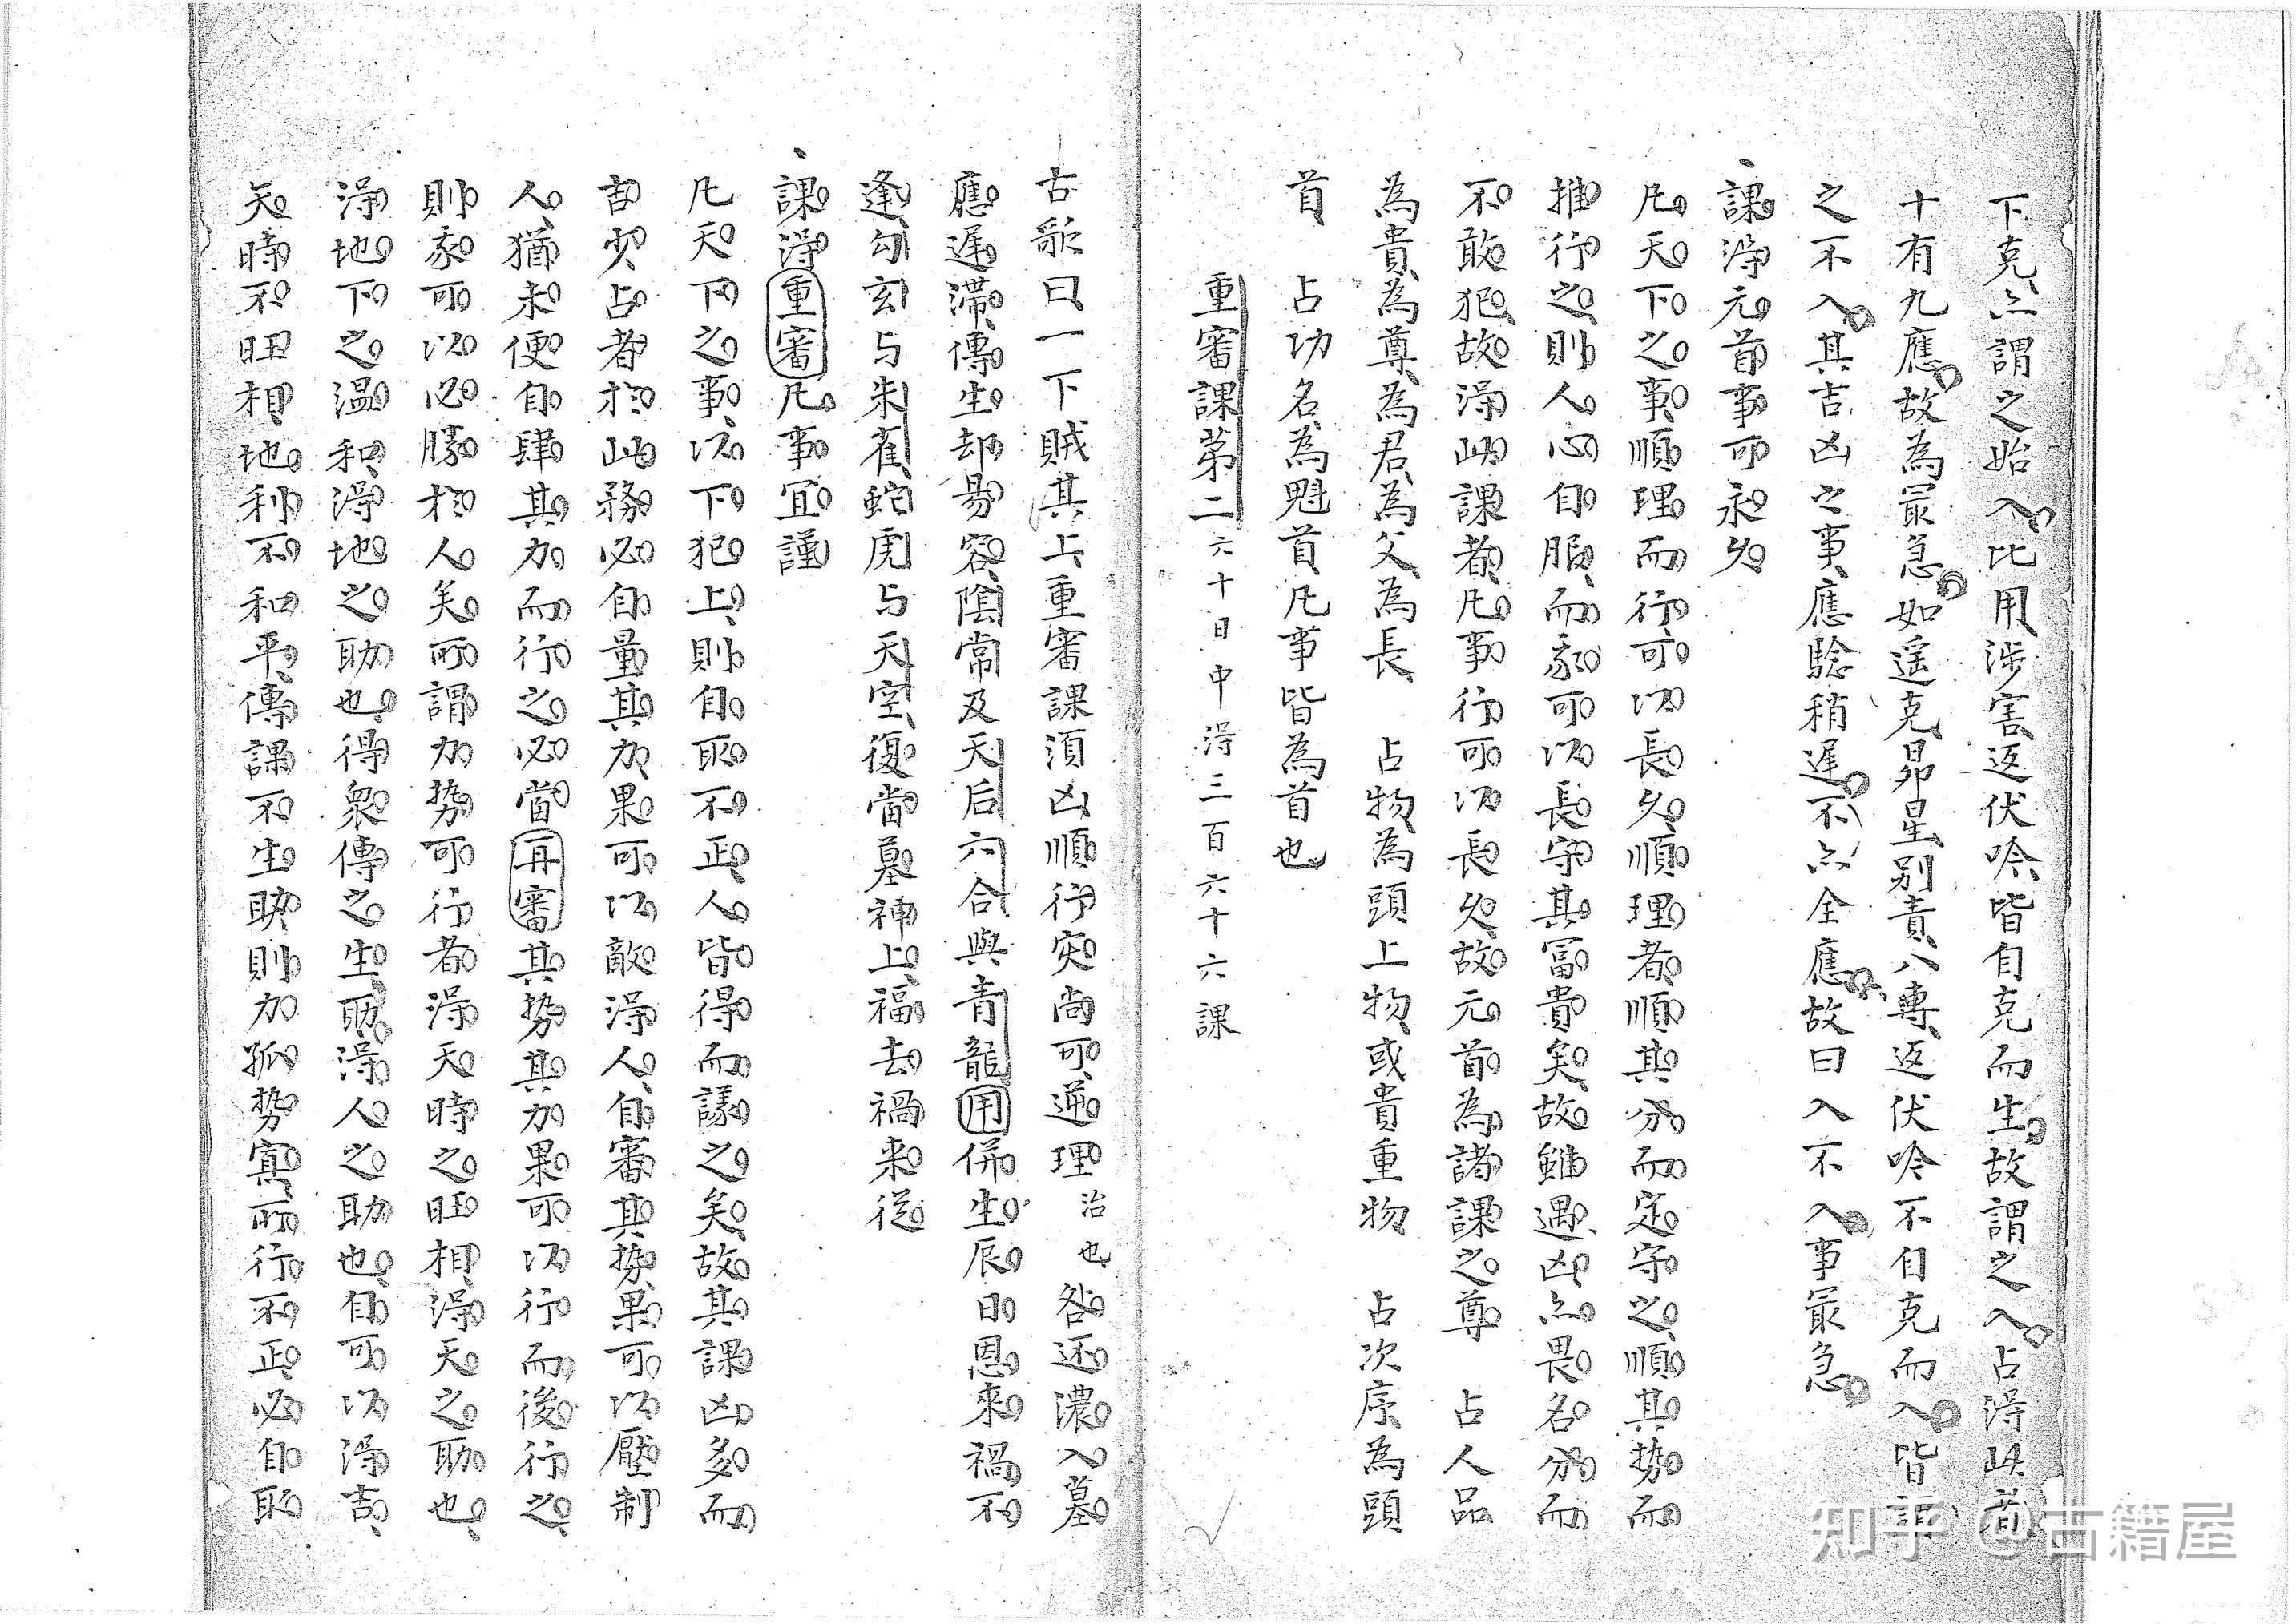 下克亦謂之始入比用涉害返伏吟皆自克而生故謂之入占得此者
十有九應故為最急如遥克昴星别責八專返伏吟不自克而入皆謂
之不入其吉凶之事應驗稍遲不亦全應故曰入不入事最急
課淂元首事可永久
凡天下之事順理而行可以長久順理者順其分而定守之順其势而
推行之則人心自服而豕可以長守其冨貴矣故雖遇凶亦畏名分而
不敢犯故淂此課者凡事行可以長久故元首為諸課之尊　占人品
為貴為尊為君為父為長　占物為頭上物或貴重物　占次序為頭
首　占功名為魁首凡事皆為首也
重審課第二六十日中淂三百六十六課
古歌曰一下賊其上重審課須凶順行灾尚可逆理治也咎还濃入墓
應遲滞傳生却易容陰常及天后六合與青龍用併生辰日恩來禍不
逢勾玄与朱雀蛇虎与天空復當墓神上福去禍来從
課淂重審凡事宜謹
凡天下之事以下犯上則自取不正人皆得而議之矣故其課凶多而
吉少占者於此務必自量其力果可以敵淂人自審其势果可以壓制
人猶未便自肆其力而行之必當再審其势其力果可以行而後行之
則豕可以必勝於人矣所謂力势可行者淂天時之旺相淂天之助也
淂地下之温和淂地之助也得衆傳之生助淂人之助也自可以淂吉
天時不旺相地利不和平傳課不生助則力孤势寡所行不正必自取
知乎 @古籍屋